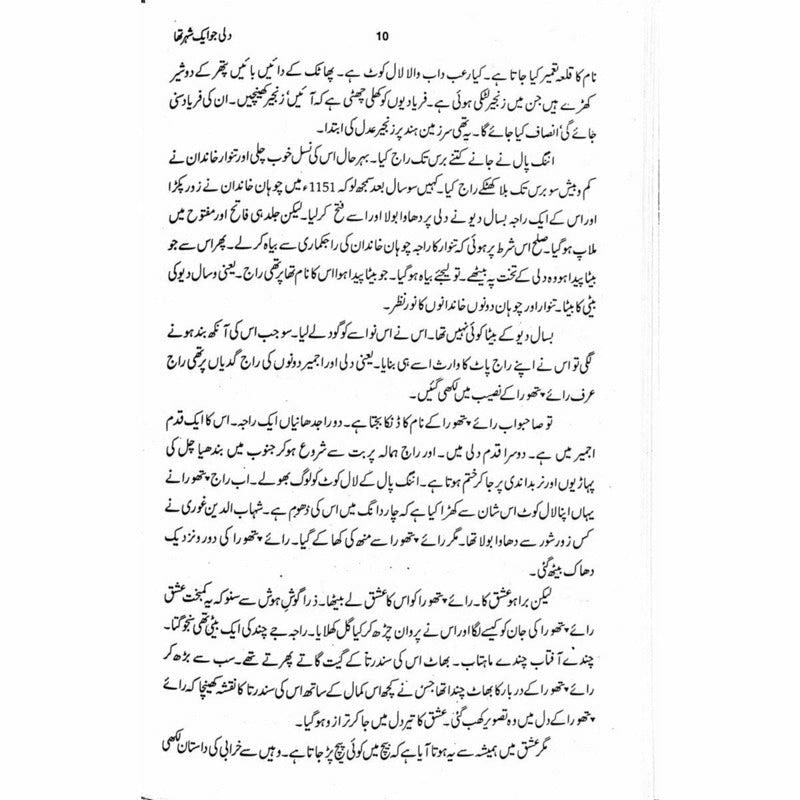 دلی جو ایک شہر تھا
10
نام کا قلعہ تعمیر کیا جاتا ہے۔ کیا رعب داب والا لال کوٹ ہے۔ پھاٹک کے دائیں بائیں پتھر کے دو شیر
کھڑے ہیں جن میں زنجیر لٹکی ہوئی ہے۔ فریادیوں کو کھلی چھٹی ہے کہ آئیں' زنجیر کھینچیں۔ ان کی فریاد سنی
جائے گی' انصاف کیا جائے گا۔ یہ تھی سرزمین ہند پر زنجیر عدل کی ابتدا۔
اننگ پال نے جانے کتنے برس تک راج کیا۔ بہرحال اس کی نسل خوب چلی اور تنوار خاندان نے
کم و بیش سو برس تک بلا کھٹکے راج کیا۔ کہیں سو سال بعد سمجھ لو کہ 1151ء میں چوہان خاندان نے زور پکڑا
اور اس کے ایک راجہ بسال دیو نے دلی پر دھاوا بولا اور اسے فتح کر لیا۔ لیکن جلد ہی فاتح اور مفتوح میں
ملاپ ہو گیا۔ صلح اس شرط پر ہوئی کہ تنوار کا راجہ چوہان خاندان کی راجکماری سے بیاہ کر لے۔ پھر اس سے جو
بیٹا پیدا ہو وہ دلی کے تخت پہ بیٹھے۔ تو لیجئے بیاہ ہو گیا۔ جو بیٹا پیدا ہوا اس کا نام تھا پرتھی راج۔ یعنی وسال دیو کی
بیٹی کا بیٹا۔ تنوار اور چوہان دونوں خاندانوں کا نور نظر۔
بسال دیو کے بیٹا کوئی نہیں تھا۔ اس نے اس نواسے کو گود لے لیا۔ سو جب اس کی آنکھ بند ہونے
لگی تو اس نے اپنے راج پاٹ کا وارث اسے ہی بنایا۔ یعنی دلی اور اجمیر دونوں کی راج گدیاں پرتھی راج
عرف رائے پتھورا کے نصیب میں لکھی گئیں۔
تو صاحبو اب رائے پتھورا کے نام کا ڈنکا بجتا ہے۔ دو راجدھانیاں ایک راجہ۔ اس کا ایک قدم
اجمیر میں ہے۔ دوسرا قدم دلی میں۔ اور راج ہمالہ پربت سے شروع ہو کر جنوب میں بندھیا چل کی
پہاڑیوں اور نربدا ندی پر جا کر ختم ہوتا ہے۔ اننگ پال کے لال کوٹ کو لوگ بھولے۔ اب راج پتھورا نے
یہاں اپنا لال کوٹ اس شان سے کھڑا کیا ہے کہ چار دانگ میں اس کی دھوم ہے۔ شہاب الدین غوری نے
کس زور شور سے دھاوا بولا تھا۔ مگر رائے پتھورا سے منھ کی کھا کے گیا۔ رائے پتھورا کی دور و نزدیک
دھاک بیٹھ گئی۔
لیکن برا ہو عشق کا۔ رائے پتھورا کو اس کا عشق لے بیٹھا۔ ذرا گوش ہوش سے سنو کہ یہ کمبخت عشق
رائے پتھورا کی جان کو کیسے لگا اور اس نے پروان چڑھ کر کیا گل کھلایا۔ راجہ جے چند کی ایک بیٹی تھی سنجوگتا۔
چندے آفتاب چندے ماہتاب۔ بھاٹ اس کی سندرتا کے گیت گاتے پھرتے تھے۔ سب سے بڑھ کر
رائے پتھورا کے دربار کا بھاٹ چندا تھا جس نے کچھ اس کمال کے ساتھ اس کی سندرتا کا نقشہ کھینچا کہ رائے
پتھورا کے دل میں وہ تصویر کھب گئی۔ عشق کا تیر دل میں جا کر ترازو ہو گیا۔
مگر عشق میں ہمیشہ سے یہ ہوتا آیا ہے کہ بیچ میں کوئی پیچ پڑ جاتا ہے۔ وہیں سے خرابی کی داستان لکھی